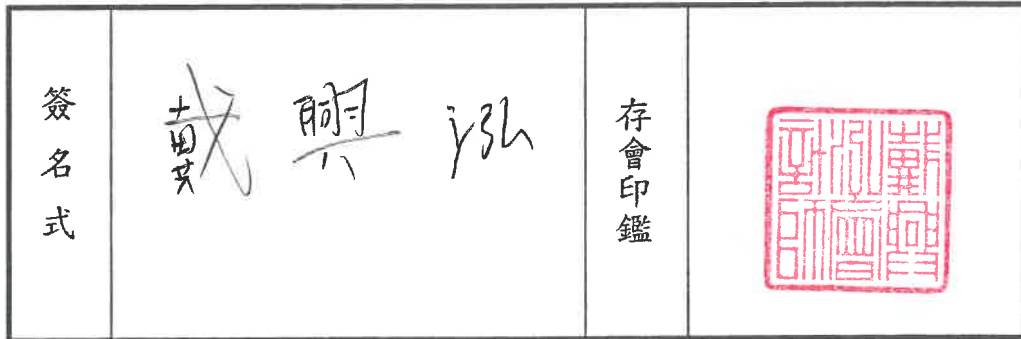 簽名式
戴興泓
存會印鑑
戴興泓會計師